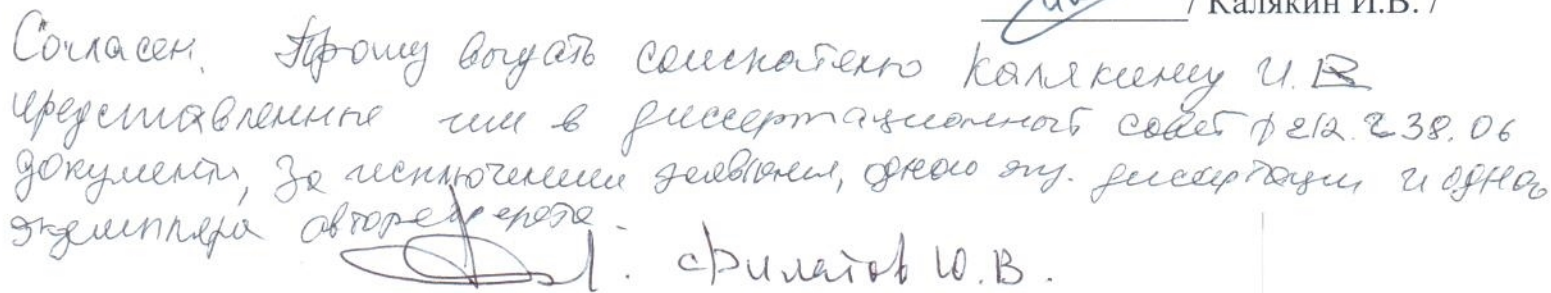 / Калякин И.В. /
Согласен. Прошу выдать соискателю Калякину И.В
представленные им в диссертационный совет Д 212.238.06
документы, за исключением заявления, одного экз. диссертации и одного
экземпляра автореферата.
Филатов Ю.В.